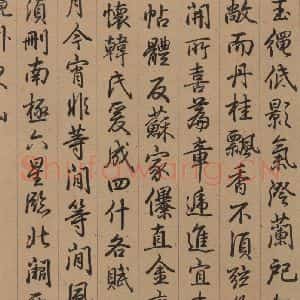 玉繩低影氣澄蘭
敞而丹桂飄香不須
開所喜薦章遞進宜
帖體反蘇家儤直金
懷韓氏爰成四什各賦
月今宵非等閒等閒風
須刪南極六星臨此闕
Shufawang.CN